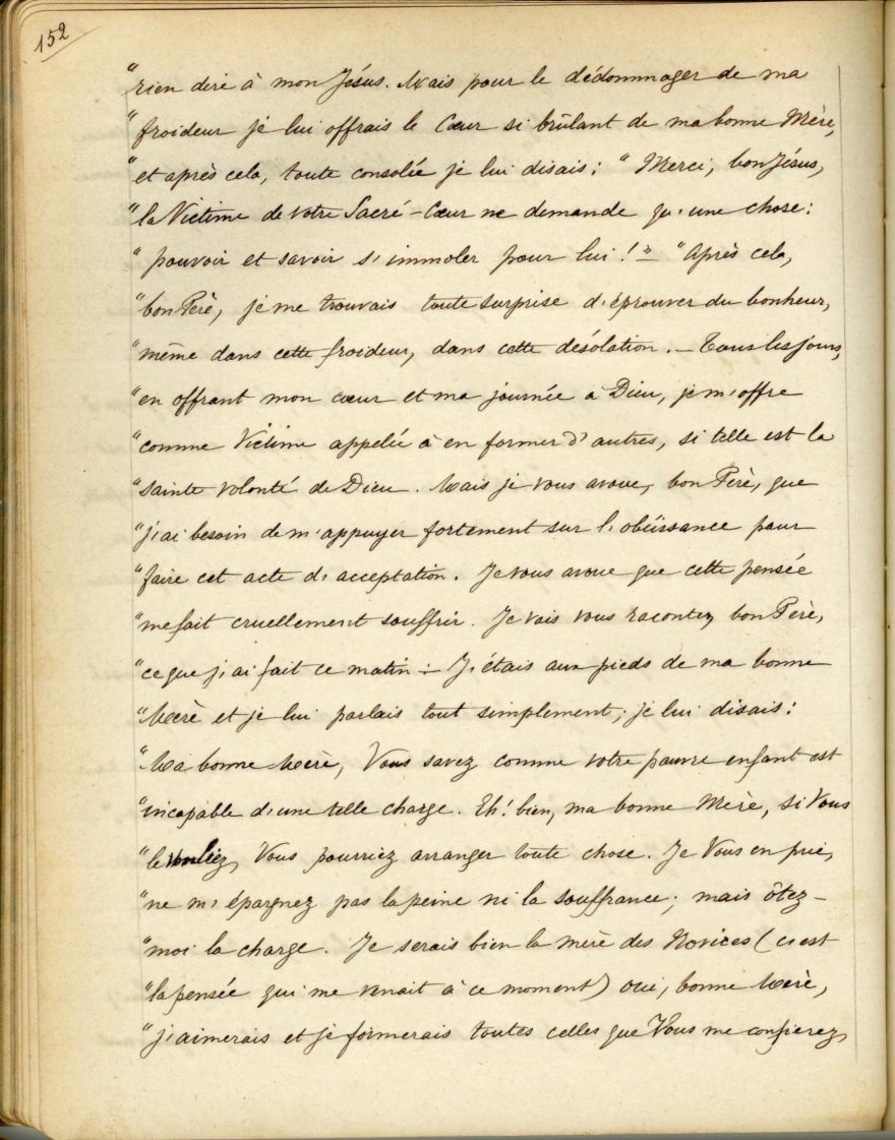 152
"rien dire à mon Jésus. Mais pour le dédommager de ma
"froideur je lui offrais le Cœur si brûlant de ma bonne Mère,
"et après cela, toute consolée je lui disais: "Merci, bon Jésus,
"la Victime de votre Sacré-Cœur ne demande qu'une chose:
"pouvoir et savoir s'immoler pour lui!" – "Après cela,
"bon Père, je me trouvais toute surprise d'éprouver du bonheur,
"même dans cette froideur, dans cette désolation. – Tous les jours,
"en offrant mon cœur et ma journée à Dieu, je m'offre
"comme Victime appelée à en former d'autres, si telle est la
"sainte volonté de Dieu. Mais je vous avoue, bon Père, que
"j'ai besoin de m'appuyer fortement sur l'obéissance pour
"faire cet acte d'acceptation. Je vous avoue que cette pensée
"me fait cruellement souffrir. Je vais vous raconter, bon Père,
"ce que j'ai fait ce matin:– J'étais aux pieds de ma bonne
"Mère et je lui parlais tout simplement; je lui disais:
"Ma bonne Mère, Vous savez comme votre pauvre enfant est
"incapable d'une telle charge. Eh! bien, ma bonne Mère, si Vous
"le vouliez, Vous pourriez arranger toute chose. Je Vous en prie,
"ne m'épargnez pas la peine ni la souffrance; mais ôtez-
"moi la charge. Je serais bien la mère des Novices (c'est
"la pensée qui me venait à ce moment) oui, bonne Mère,
"j'aimerais et je formerais toutes celles que Vous me confierez,